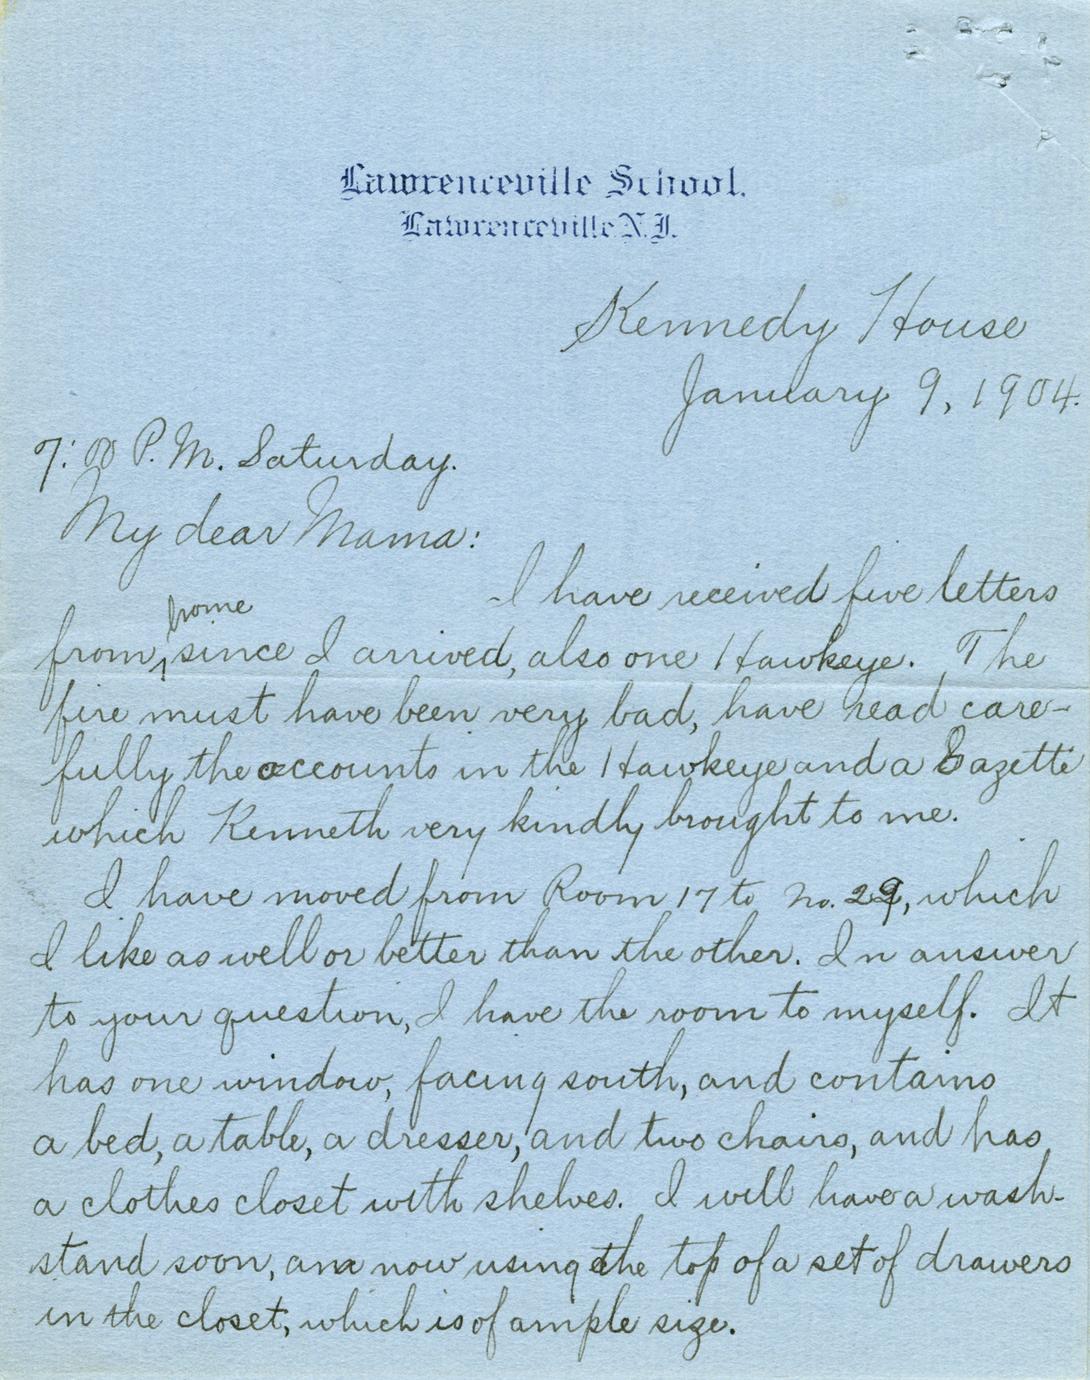 Lawrenceville School.
Lawrenceville N.J.
Kennedy House
January 9, 1904.
7:00 P.M. Saturday.
My dear Mama:
I have received five letters
home
from, since I arrived, also one Hawkeye. The
fire must have been very bad, have read care-
fully the accounts in the Hawkeye and a Gazette
which Kenneth very kindly brought to me.
I have moved from Room 17 to No. 29, which
I like as well or better than the other. In answer
to your question, I have the room to myself. It
has one window, facing south, and contains
a bed, a table, a dresser, and two chairs, and has
a clothes closet with shelves. I will have a wash-
stand soon, am now using the top of a set of drawers
in the closet, which is of ample size.